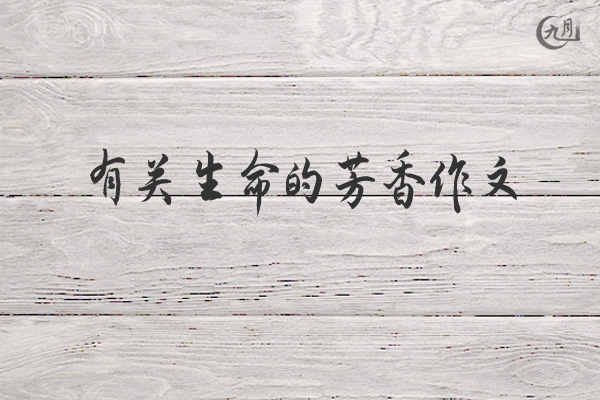 九月
有关生命的芳香作文